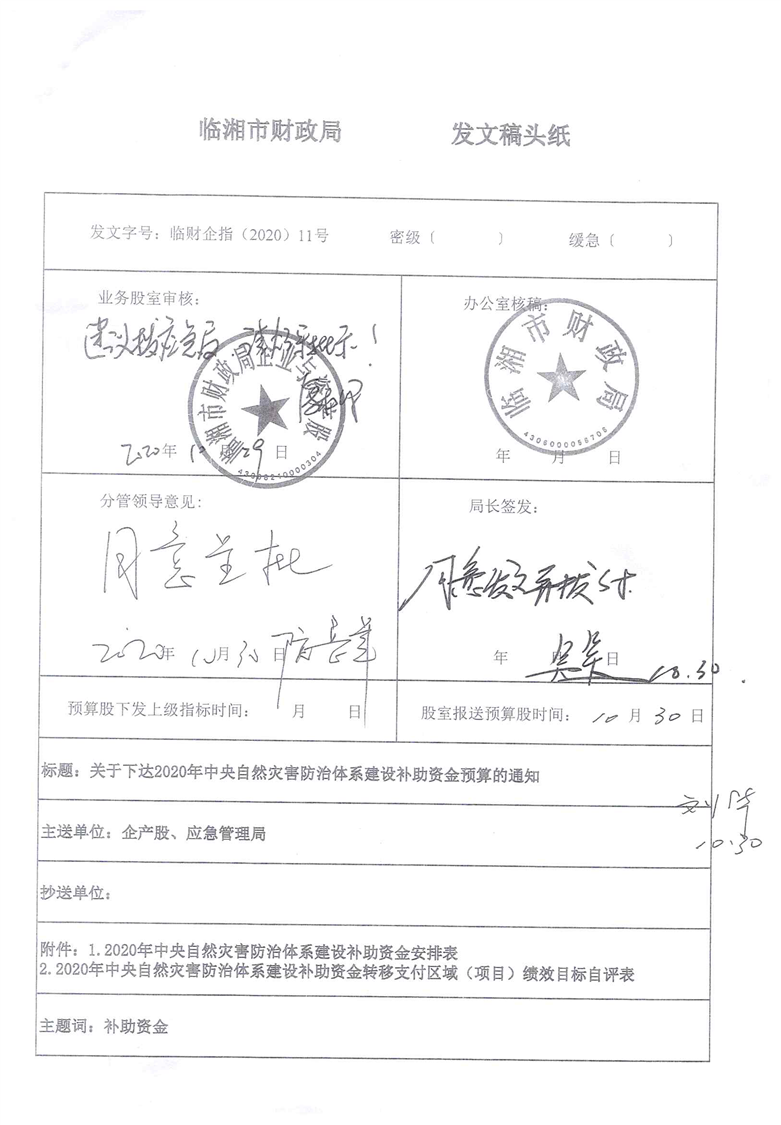 临湘市财政局 发文稿头纸
发文字号：临财企指（2020）11号 密级〔 〕 缓急〔 〕
业务股室审核：
建议拨应急局 请领导批示！
2020年10月29日
临湘市财政局企业与
43068210000304
办公室核稿：
临湘市财政局
4306000058708
年 月 日
分管领导意见：
同意呈批
2020年10月30日
局长签发：
同意发文并拨付
年 月 日
10.30
预算股下发上级指标时间： 月 日
股室报送预算股时间：10月30日
标题：关于下达2020年中央自然灾害防治体系建设补助资金预算的通知
10.30
主送单位：企产股、应急管理局
抄送单位：
附件：1.2020年中央自然灾害防治体系建设补助资金安排表
2.2020年中央自然灾害防治体系建设补助资金转移支付区域（项目）绩效目标自评表
主题词：补助资金